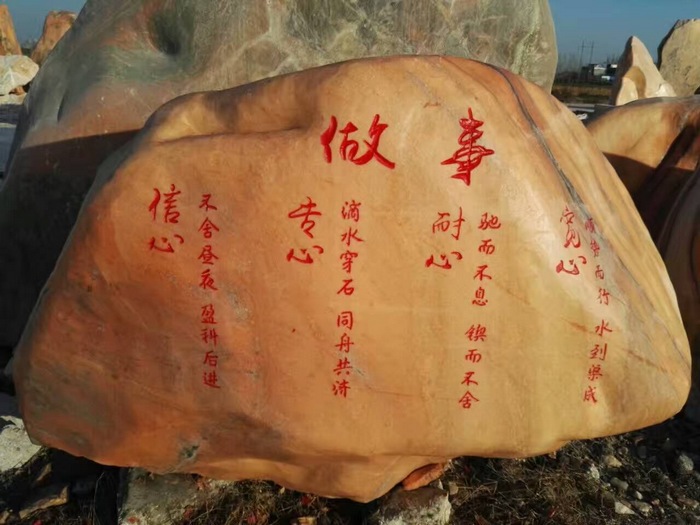 做事
信心
不舍昼夜 盈科后进
专心
滴水穿石 同舟共济
耐心
驰而不息 锲而不舍
宽心
顺势而行 水到渠成